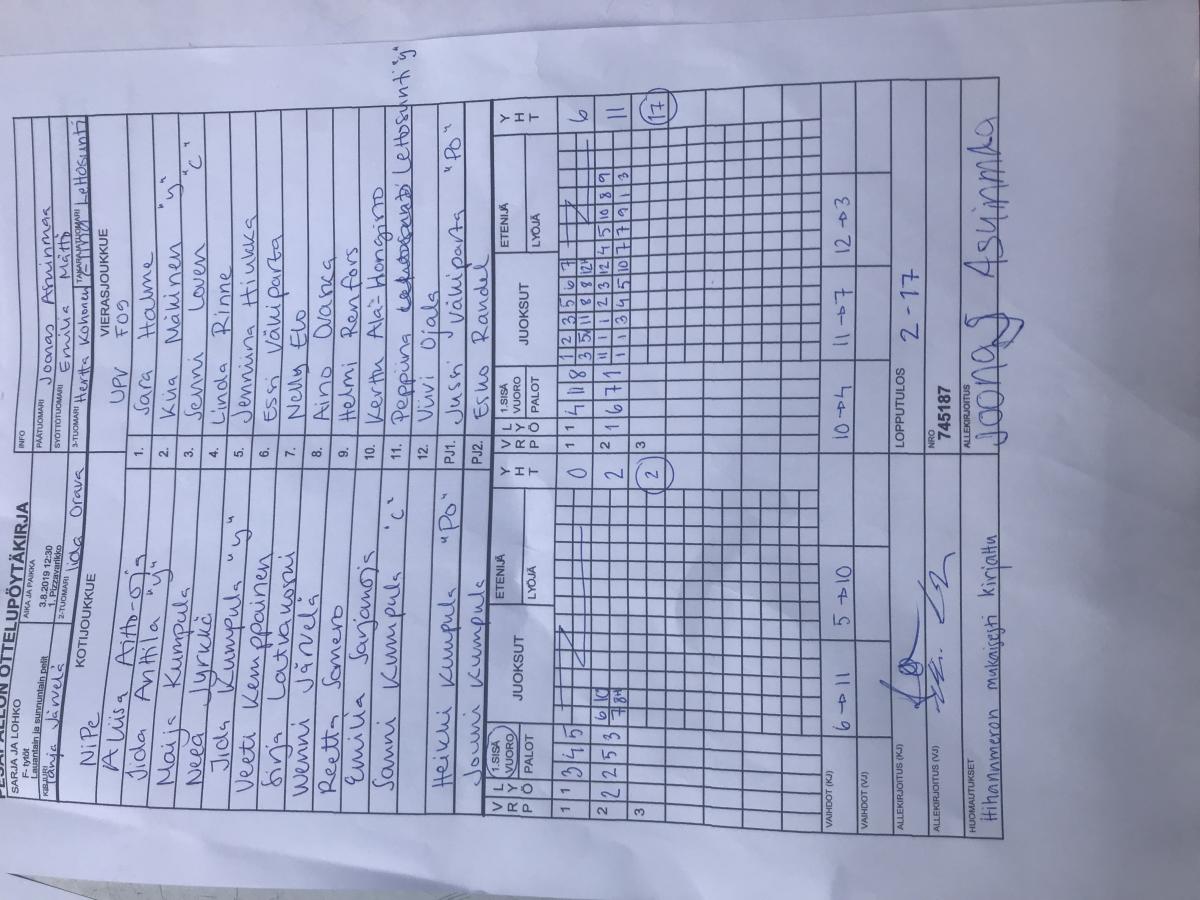 PESÄPALLON OTTELUPÖYTÄKIRJA
SARJA JA LOHKO
F- tytöt
Lauantain ja sunnuntain pelit
AIKA JA PAIKKA
3.8.2019 12:30
1. Pizzavarikko
INFO
KIRJURI
Tanja Järvelä
2-TUOMARI Iida Orava
PÄÄTUOMARI Joonas Asyinmaa
SYÖTTÖTUOMARI Emilia Mättö
3-TUOMARI Hertta Kohonen
TAKARAJATUOMARI Tiina Lehtosunti
KOTIJOUKKUE
NiPe
VIERASJOUKKUE
UPV F09
Aliisa Aitto-oja 1. Sara Halme
Jida Anttila "y" 2. Kiia Mäkinen "y"
Maija Kumpula 3. Jenni Loven "c"
Neea Jyrkkä 4. Linda Rinne
Jida Kumpula "y" 5. Jenniina Hiukka
Veeti Kemppainen 6. Essi Väkiparta
Sirja Latvakoski 7. Nelly Elo
Venni Järvelä 8. Aino Ovaska
Reetta Somero 9. Helmi Renfors
Emilia Sarjanoja 10. Kerttu Ala-Hongino
Sanni Kumpula "c" 11. Peppiina Lehtosunti "y"
12. Viivi Ojala
Heikki Kumpula "PO" PJ1. Jussi Väkiparta "PO"
Jouni Kumpula PJ2. Esko Randel
V P L 1.SISÄ VUORO JUOKSUT ETENIJÄ Y
R Y Ö PALOT LYÖJÄ H T
1 1 3 4 5 0
2 2 2 5 3 6 10 2
7 8H
3 2
V P L 1.SISÄ VUORO JUOKSUT ETENIJÄ Y
R Y Ö PALOT LYÖJÄ H T
1 1 4 11 8 1 2 3 5 6 7 6
3 5H 11 8 8 12H
2 1 6 7 1 11 1 1 2 3 12 4 5 10 8 9 11
1 1 3 4 5 10 7 7 9 1 3
3 17
VAIHDOT (KJ) 6→11 5→10 10→4 11→7 12→3
VAIHDOT (VJ)
ALLEKIRJOITUS (KJ)
LOPPUTULOS 2-17
ALLEKIRJOITUS (VJ)
NRO
745187
HUOMAUTUKSET
Hihanumeron mukaisesti kirjattu
ALLEKIRJOITUS
Joonas Asyinmaa